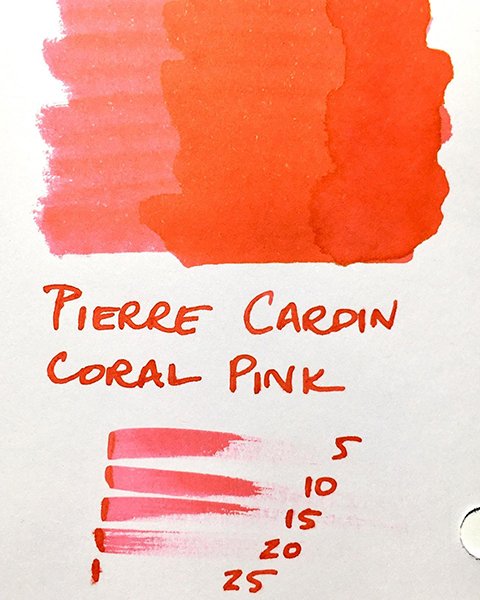 PIERRE CARDIN
CORAL PINK
5
10
15
20
25